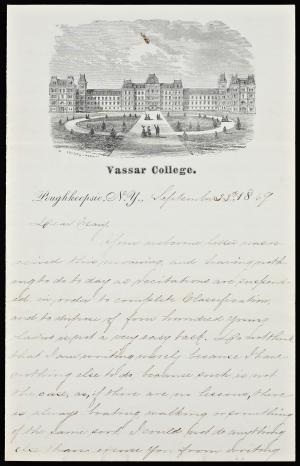 Vassar College.
Poughkeepsie, N.Y., September 23rd, 1869
Dear Jean,
Your welcome letter was re-
ceived this morning, and having noth-
ing to do to day as recitations are suspend-
ed in order to complete Classification,
and to dispose of four hundred young
ladies is not a very easy task. Do not think
that I am writing merely because I have
nothing else to do, because such is not
the case, as, if there are no lessons, there
is always boating walking or something
of the same sort. I could not do anything
else than, excuse you from writing